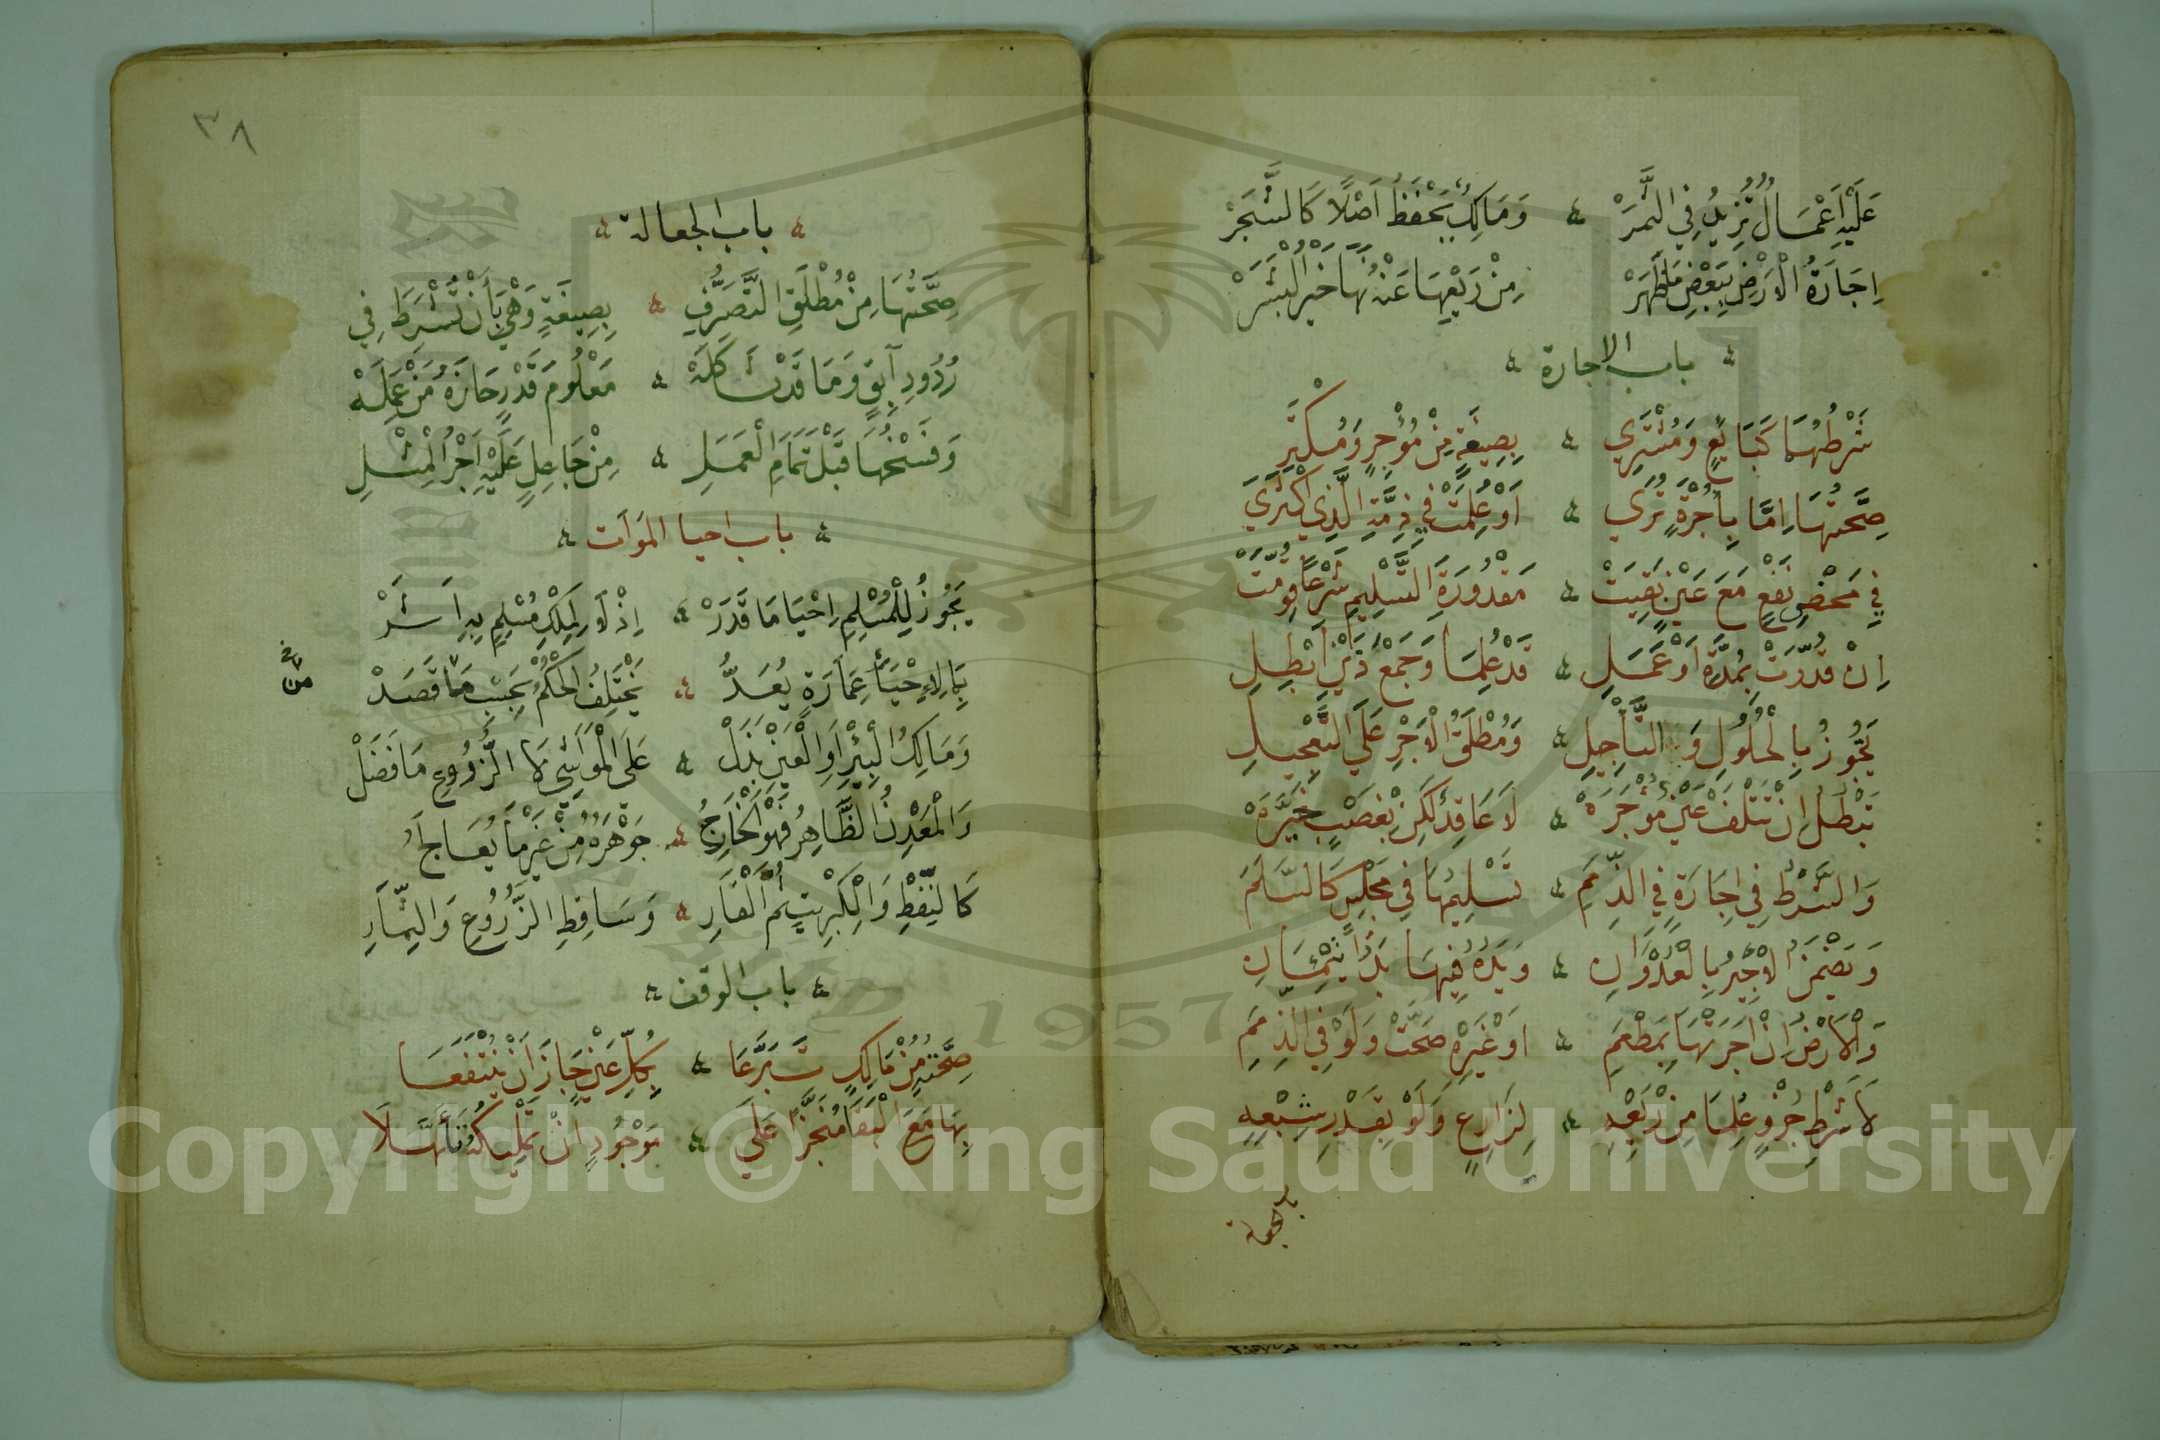 عَلَيْهِ اَعْمَالٌ تُزِيدُ فِي الثَّمَرْ ۞ وَمَالِكٌ يَحْفَظُ اَصْلًا كَالشَّجَرْ
اِجَارَةُ الْاَرْضِ بِبَعْضِ مَا ظَهَرْ ۞ مِنْ رَيْعِهَا عَنْهُ نَهَا خَيْرُ الْبَشَرْ
باب الاجارة
شَرْطُهُمَا كَبَايِعٍ وَمُشْتَرِي ۞ بِصِيغَةٍ مِنْ مُؤْجِرٍ وَمُكْتَرِ
صِحَّتُهَا اِمَّا بِاُجْرَةٍ تُرَي ۞ اَوْ عُلِمَتْ فِي ذِمَّةِ الَّذِي اكْتَرَي
فِي مَحْضِ نَفْعٍ مَعَ عَيْنٍ بَقِيَتْ ۞ مَقْدُورَةِ التَّسْلِيمِ شَرْعًا قُوِّمَتْ
اِنْ قُدِّرَتْ بِمُدَّةٍ اَوْ عَمَلِ ۞ قَدْ عُلِمَا وَجَمْعُ ذَيْنِ اَبْطِلِ
يَجُوزُ بِالْحُلُولِ وَالتَّاْجِيلِ ۞ وَمُطْلَقُ الْاَجْرِ عَلَي التَّعْجِيلِ
تَبْطُلُ اِنْ تَتْلَفْ عَيْنٌ مُؤْجَرَهْ ۞ لَا عَاقِدٌ لَكِنْ بِغَصْبٍ خَيَّرَهْ
وَالشَّرْطُ فِي اِجَارَةٍ فِي الذِّمَمِ ۞ تَسْلِيمُهَا فِي مَجْلِسٍ كَالسَّلَمِ
وَيَضْمَنُ الْاَجِيرُ بِالْعُدْوَانِ ۞ وَيَدُهُ فِيهَا يَدُ ائْتِمَانِ
وَالْاَرْضُ اِنْ اَجَرْتَهَا بِمَطْعَمِ ۞ اَوْ غَيْرِهِ صَحَّتْ وَلَوْ فِي الذِّمَمِ
لَا شَرْطِ جُزْءٍ عُلِمَا مِنْ رَيْعِهِ ۞ لِزَارِعٍ وَلَوْ بِقَدْرِ شِبْعِهِ
٣٨
باب الجعالة
صِحَّتُهَا مِنْ مُطْلَقِ التَّصَرُّفِ ۞ بِصِيغَةٍ وَهْيَ بِاَنْ تَشْرِطَ فِي
رُدُودِ آبِقٍ وَمَا قَدْ شَاكَلَهْ ۞ مَعْلُومَ قَدْرٍ حَازَهُ مَنْ عَمِلَهْ
وَفَسْخُهَا قَبْلَ تَمَامِ الْعَمَلِ ۞ مِنْ جَاعِلٍ عَلَيْهِ اَجْرُ الْمِثْلِ
باب احيا الموات
يَجُوزُ لِلْمُسْلِمِ اِحْيَا مَا قَدَرْ ۞ اِذْ لَا لِمِلْكِ مُسْلِمٍ بِهِ اَثَرْ
بِمَا لِاِحْيَا عِمَارَةٍ يُعَدُّ ۞ يَخْتَلِفُ الْحُكْمُ بِحَسْبِ مَا قَصَدْ
وَمَالِكُ الْبِيْرِ اَوِ الْعَيْنِ بَذَلْ ۞ عَلَى الْمَوَاشِي لَا الزُّرُوعِ مَا فَضَلْ
وَالْمَعْدِنُ الظَّاهِرُ فَهْوَ الْخَارِجُ ۞ جَوْهَرُهُ مِنْ غَيْرِ مَا يُعَالَجُ
كَالنِّفْطِ وَالْكِبْرِيتِ ثُمَّ الْقَارِ ۞ وَسَاقِطِ الزَّرُوعِ وَالثِّمَارِ
باب الوقف
صِحَّتُهُ مِنْ مَالِكٍ تَبَرَّعَا ۞ بِكُلِّ عَيْنٍ جَازَ اَنْ يُنْتَفَعَا
بِهَا مَعَ الْبَقَا مُنَجَّزًا عَلَي ۞ مَوْجُودٍ اِنْ تَمْلِيكُهُ تَأَهَّلَا
Copyright © King Saud University
1957